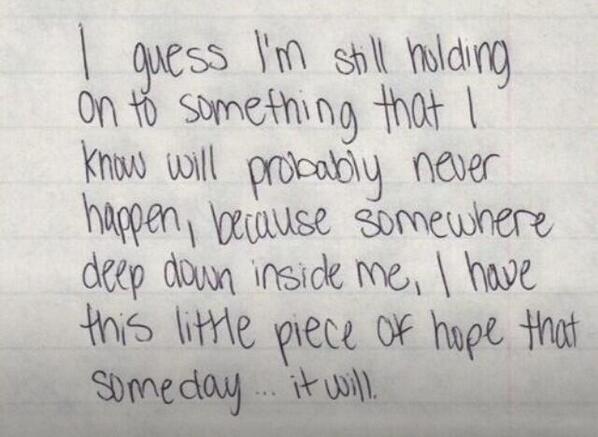 I guess I'm still holding
on to something that I
know will probably never
happen, because somewhere
deep down inside me, I have
this little piece of hope that
someday... it will.